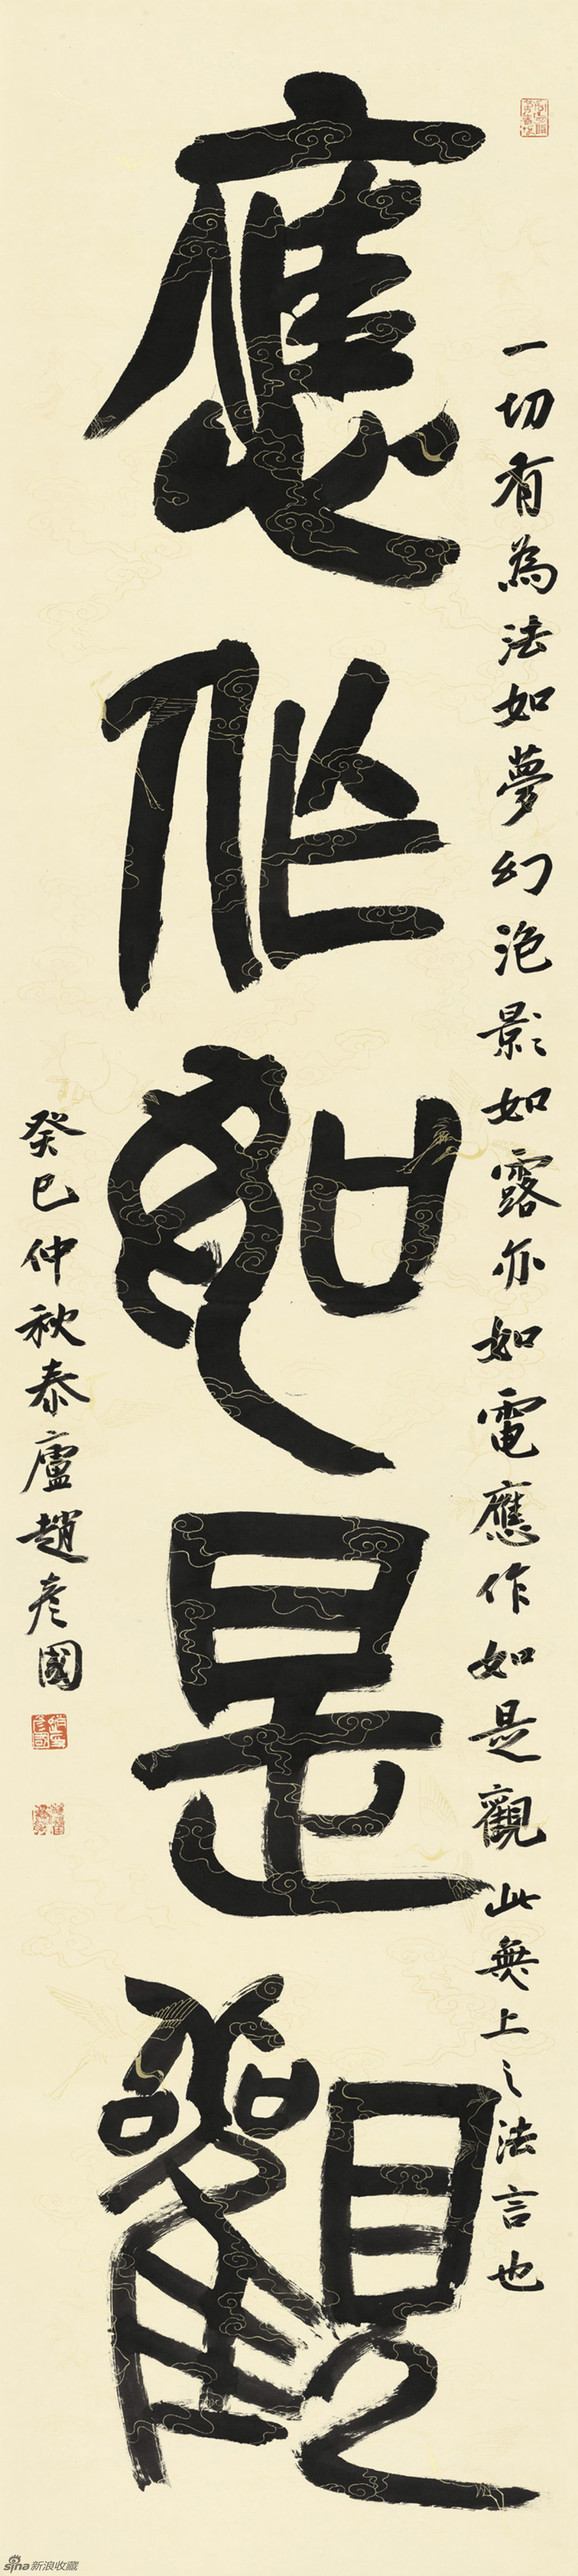 一切有為法如夢幻泡影如露亦如電應作如是觀此無上之法言也
應作如是觀
癸巳仲秋泰廬趙彥國
sina新浪收藏